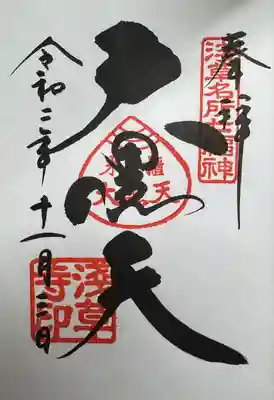 奉拝
浅草名所七福神
大黒天
浅草寺印
令和三年十一月三日